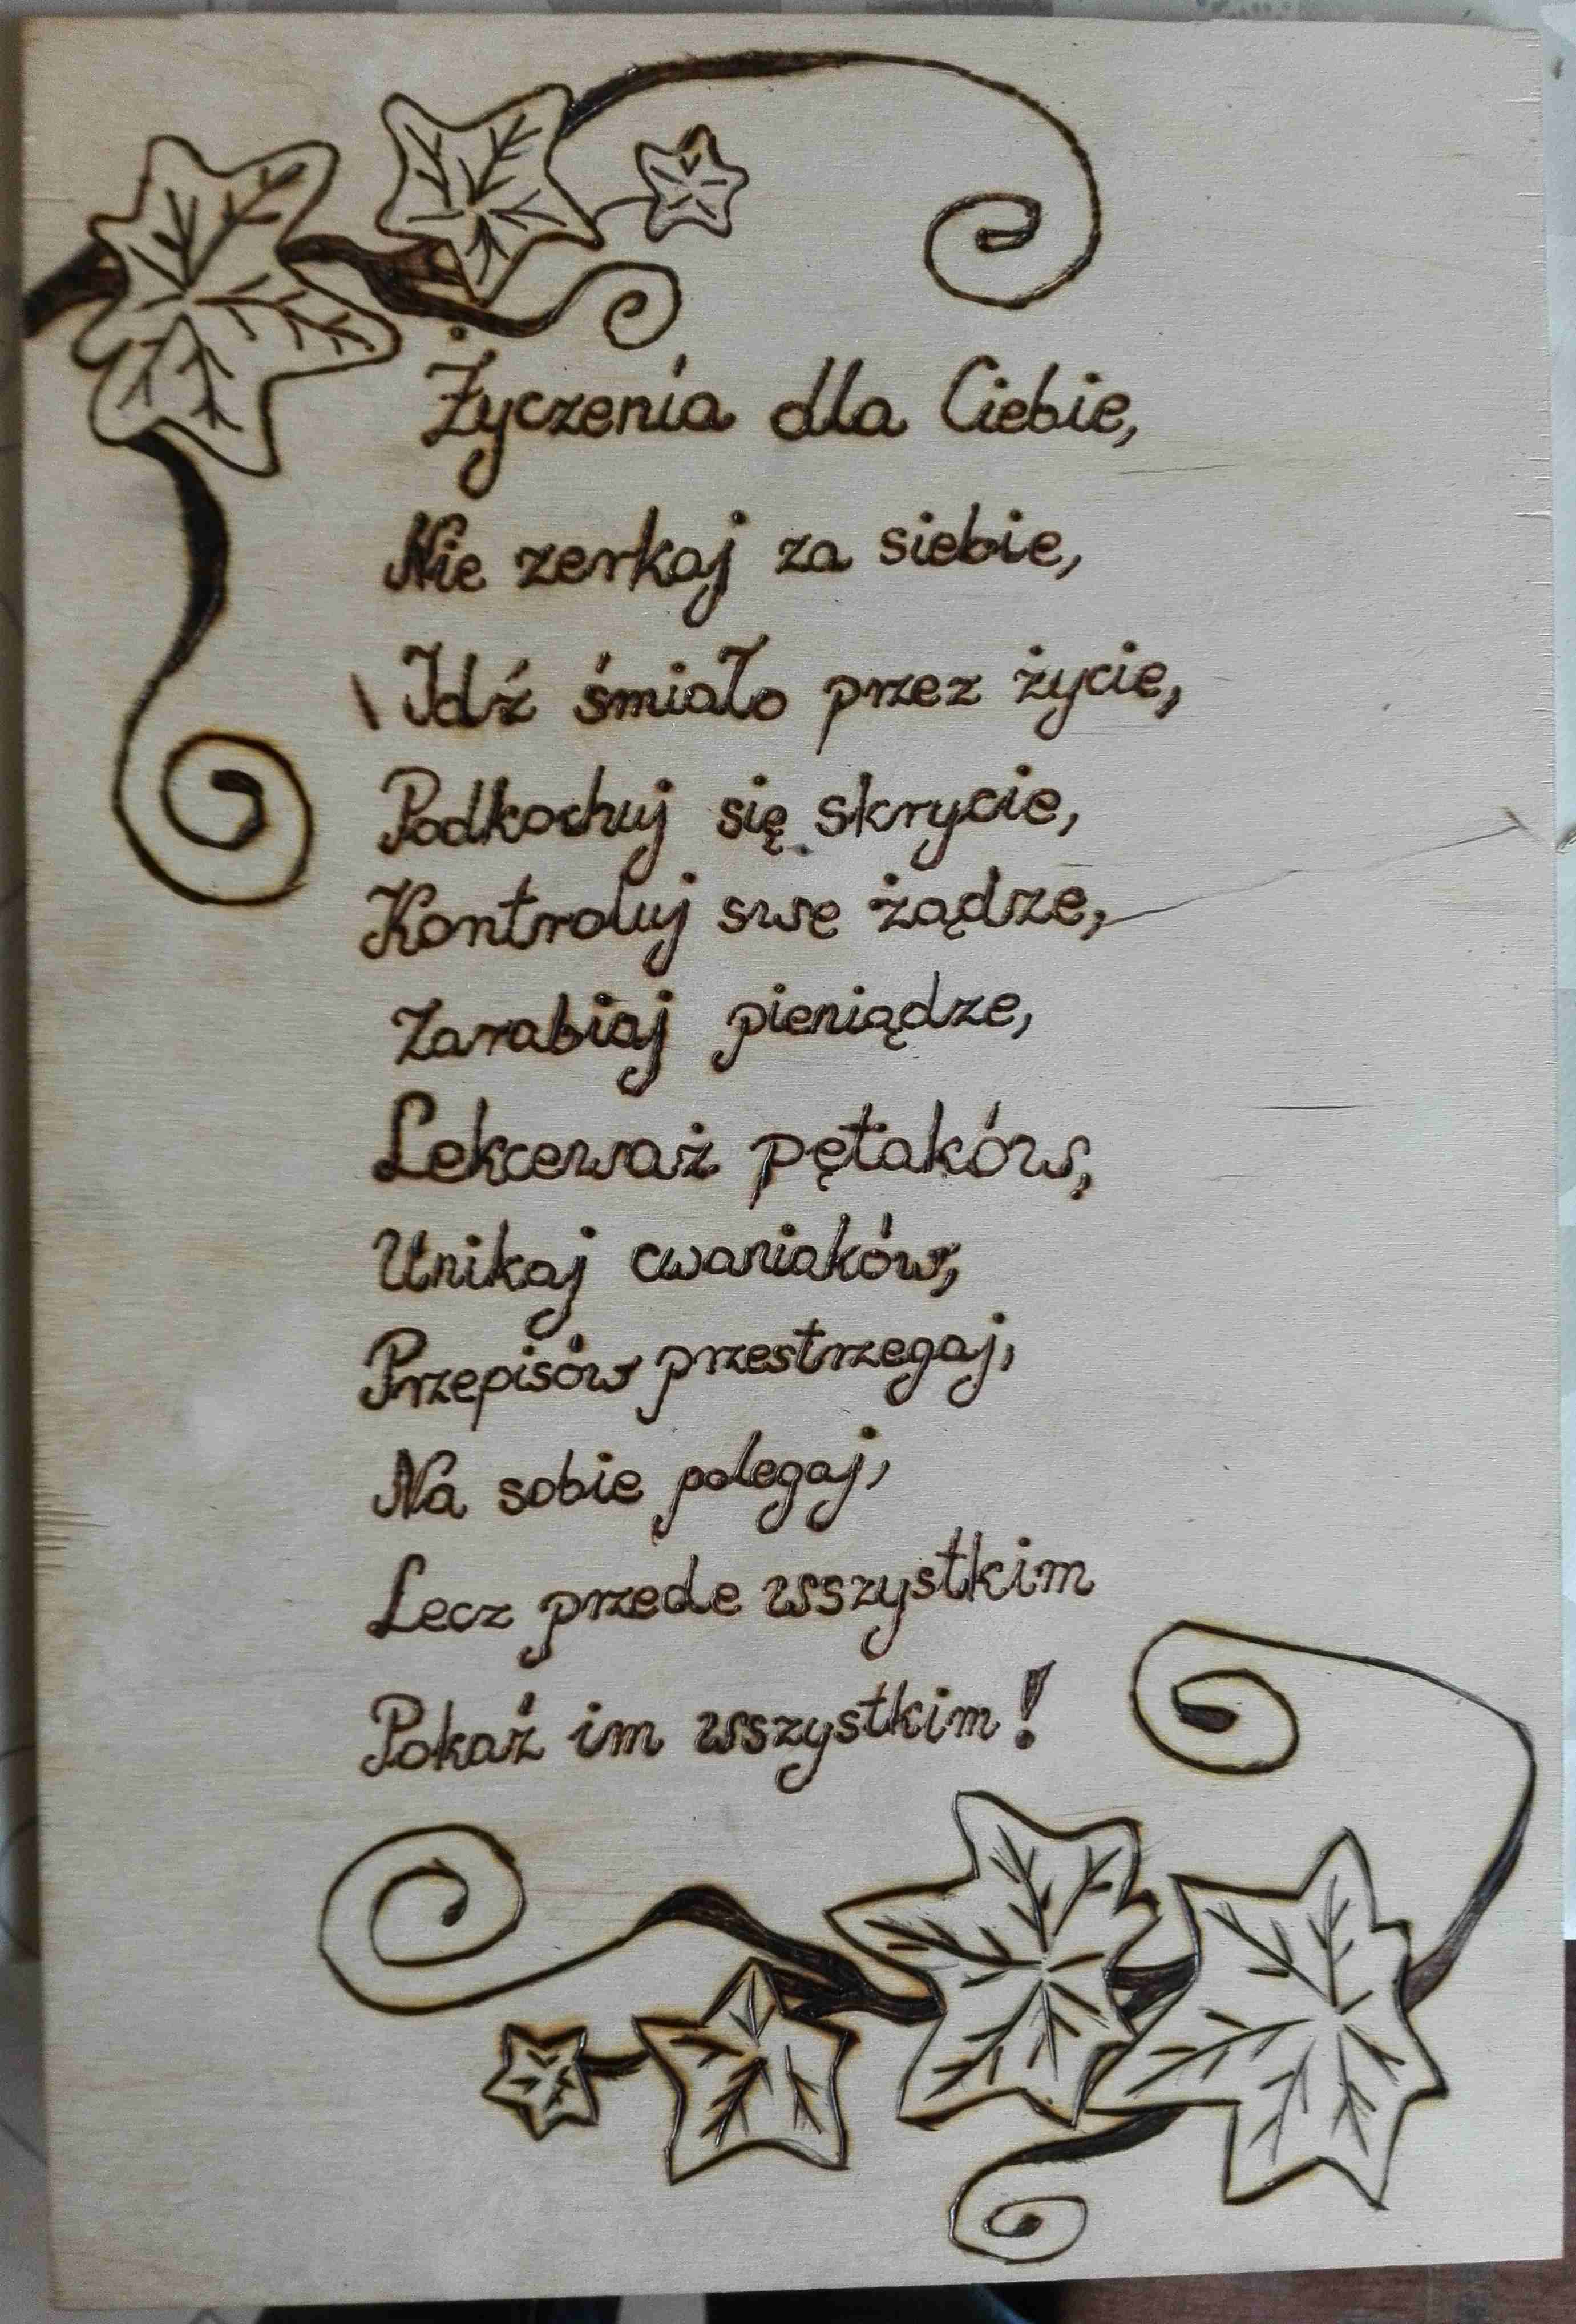 Życzenia dla Ciebie,
Nie zerkaj za siebie,
Idź śmiało przez życie,
Podkochuj się skrycie,
Kontroluj swe żądze,
Zarabiaj pieniądze,
Lekceważ pętaków,
Unikaj cwaniaków,
Przepisów przestrzegaj,
Na sobie polegaj,
Lecz przede wszystkim
Pokaż im wszystkim!